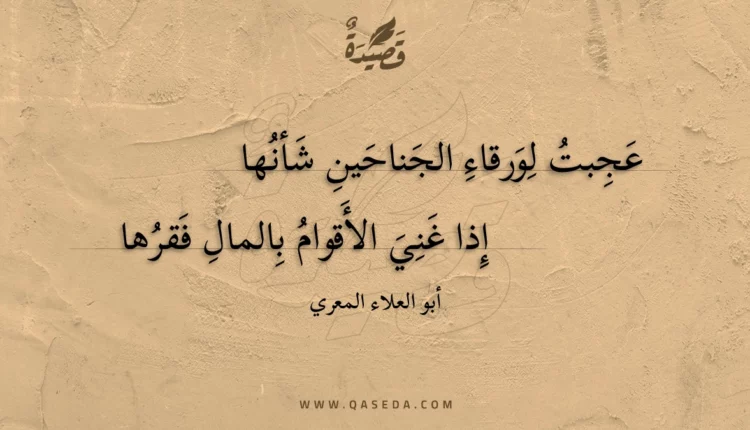 قَصِيدَةٌ
عَجِبتُ لِوَرقاءِ الجَناحَينِ شَأنُها
إِذا غَنِيَ الأَقوامُ بِالمالِ فَقرُها
أبو العلاء المعري
WWW.QASEDA.COM